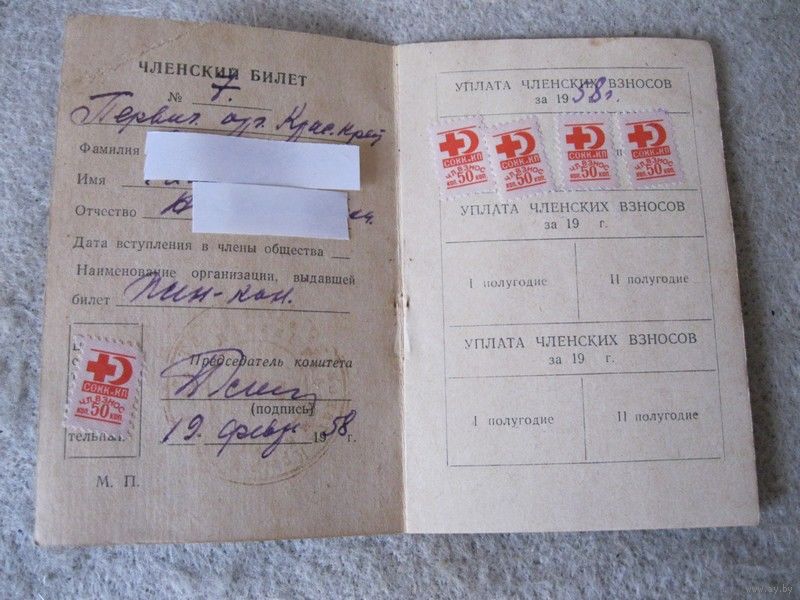 ЧЛЕНСКИЙ БИЛЕТ
№ 7.
Первич. орг. Крас. крест
Фамилия
Имя
Отчество
Дата вступления в члены общества
Наименование организации, выдавшей
билет
Председатель комитета
(подпись)
19. февр 1958 г.
тельная.
М. П.
СОКК и КП
ЧЛ.ВЗНОС
коп. 50 коп.
УПЛАТА ЧЛЕНСКИХ ВЗНОСОВ
за 1958 г.
СОКК и КП
ЧЛ.ВЗНОС
коп. 50 коп.
СОКК и КП
ЧЛ.ВЗНОС
коп. 50 коп.
СОКК и КП
ЧЛ.ВЗНОС
коп. 50 коп.
СОКК и КП
ЧЛ.ВЗНОС
коп. 50 коп.
УПЛАТА ЧЛЕНСКИХ ВЗНОСОВ
за 19 г.
I полугодие
II полугодие
УПЛАТА ЧЛЕНСКИХ ВЗНОСОВ
за 19 г.
I полугодие
II полугодие
www.ay.by